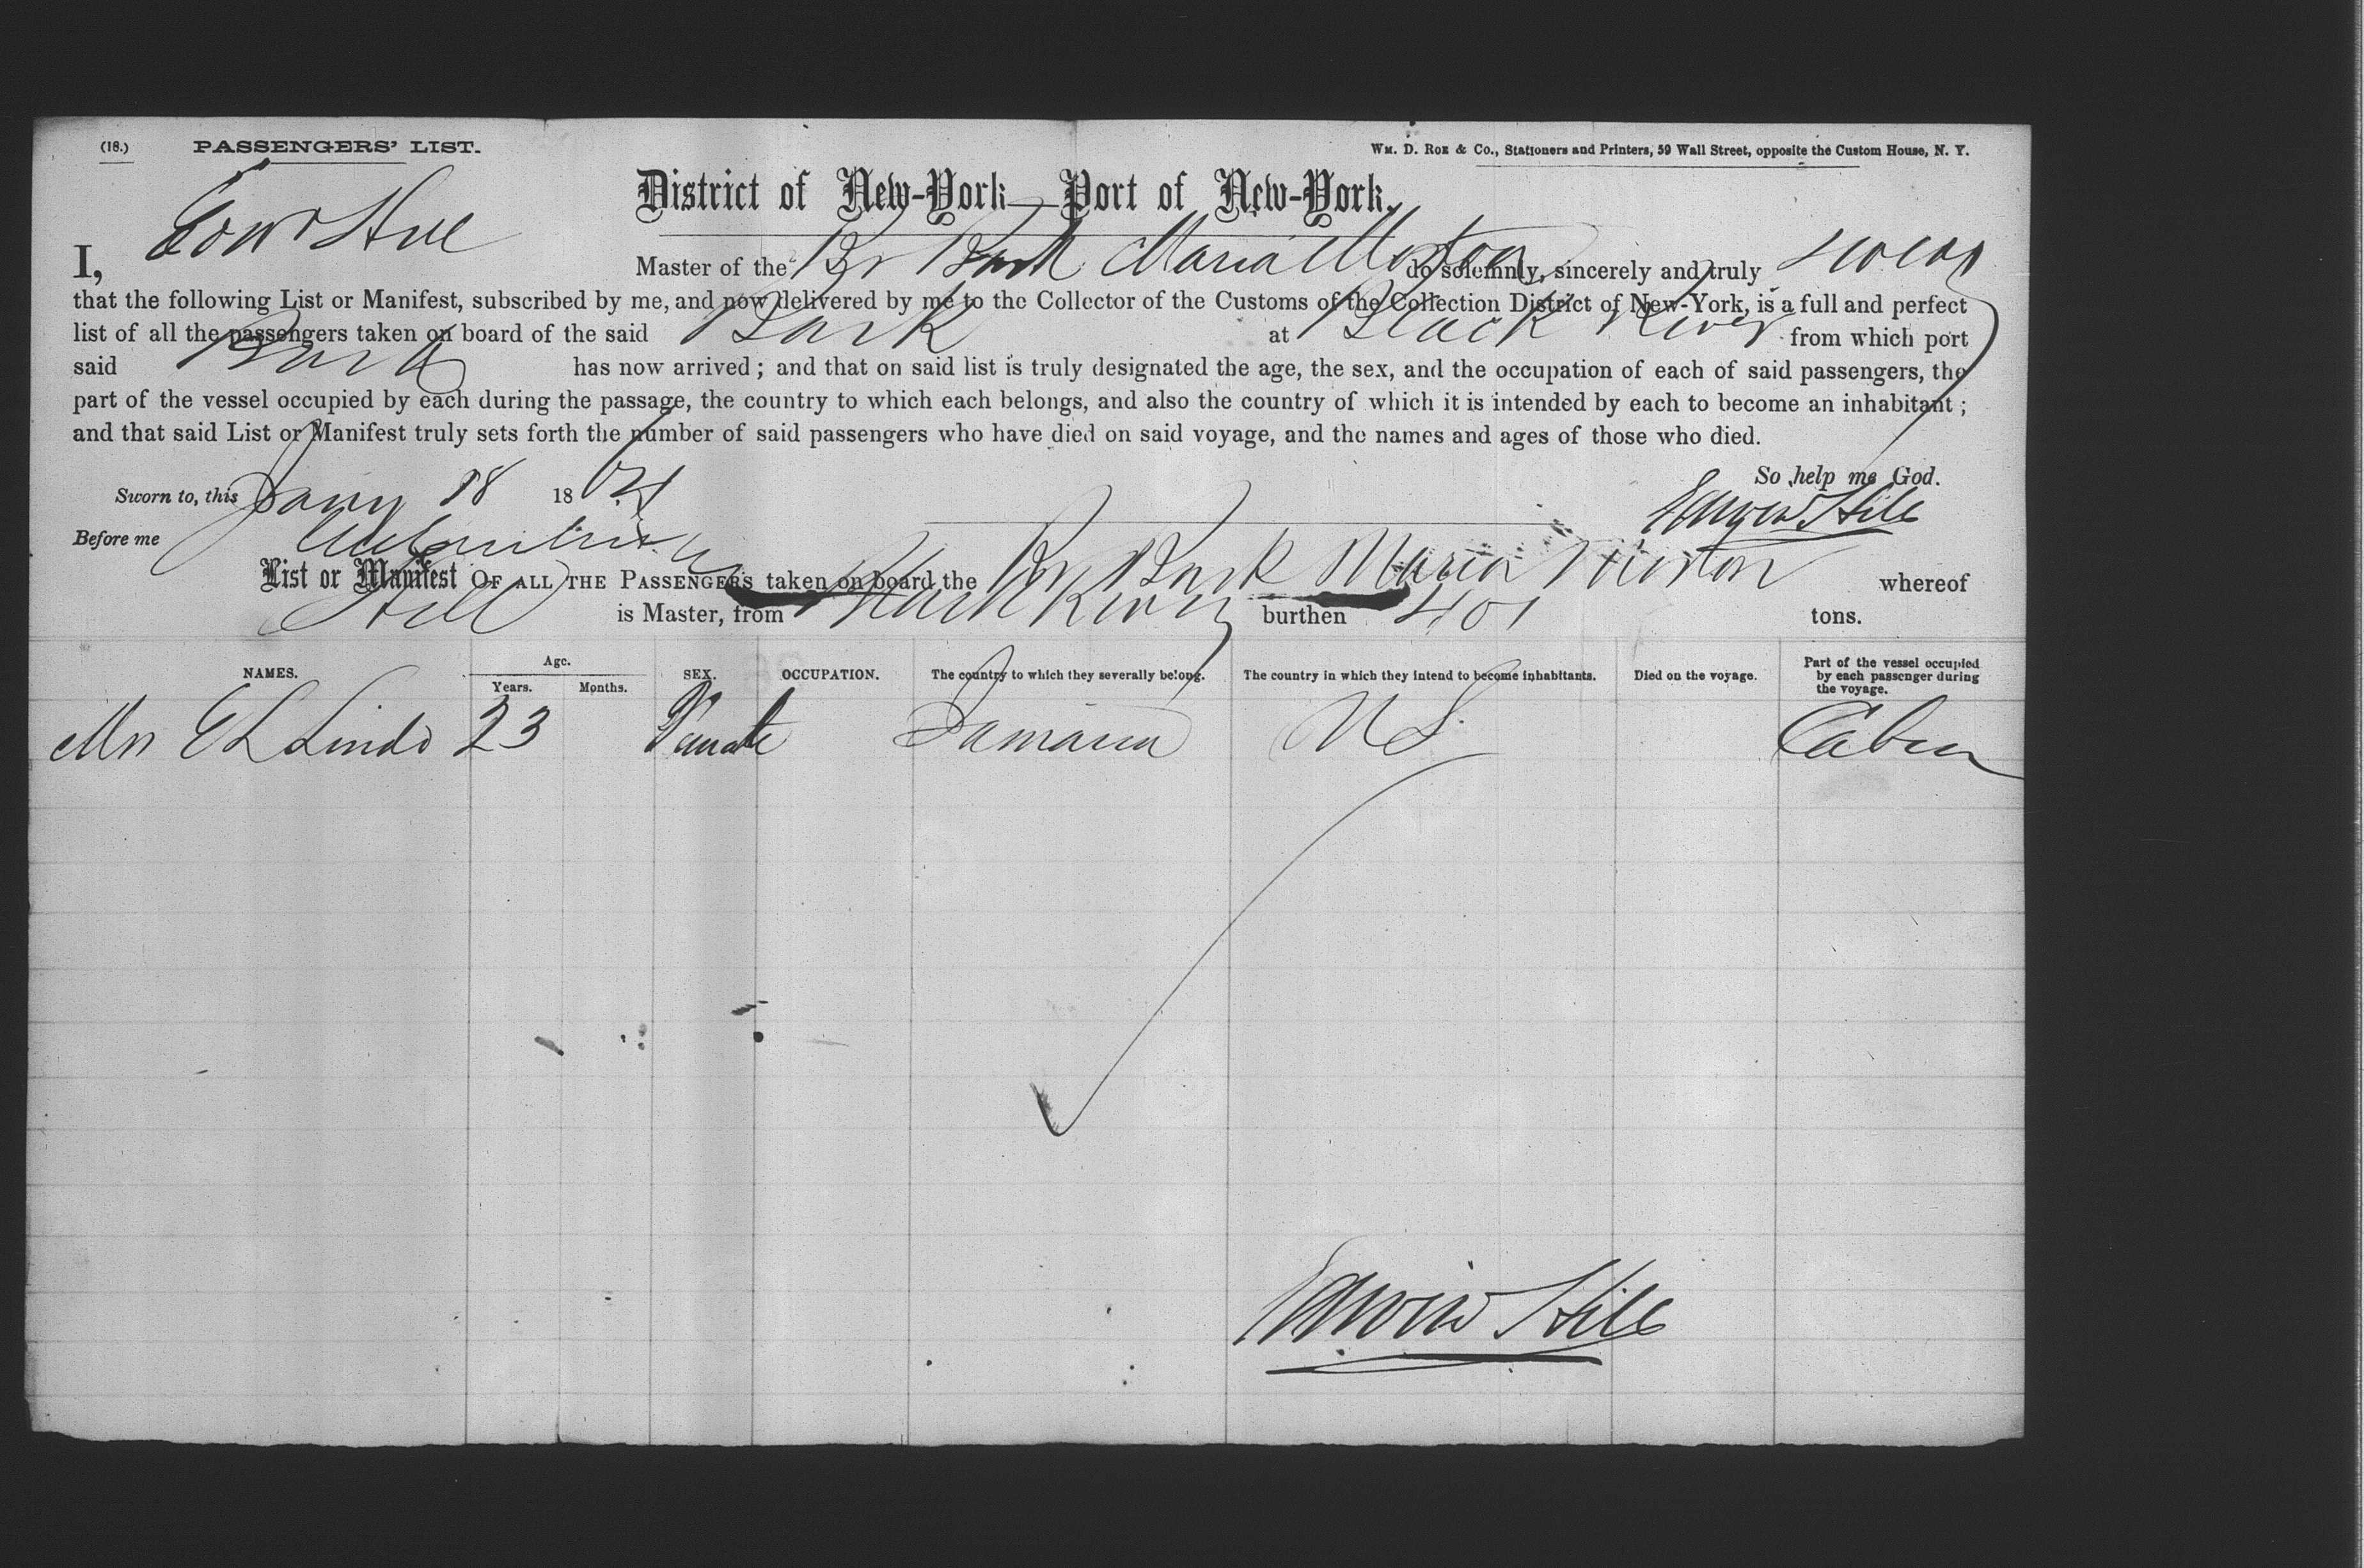 (18.) PASSENGERS' LIST. Wm. D. Roe & Co., Stationers and Printers, 59 Wall Street, opposite the Custom House, N. Y.
District of New-York—Port of New-York.
I, Edwd Hill Master of the Br Bark Maria Morton do solemnly, sincerely and truly swear
that the following List or Manifest, subscribed by me, and now delivered by me to the Collector of the Customs of the Collection District of New-York, is a full and perfect
list of all the passengers taken on board of the said Bark at Black River from which port
said Bark has now arrived; and that on said list is truly designated the age, the sex, and the occupation of each of said passengers, the
part of the vessel occupied by each during the passage, the country to which each belongs, and also the country of which it is intended by each to become an inhabitant;
and that said List or Manifest truly sets forth the number of said passengers who have died on said voyage, and the names and ages of those who died.
So help me God.
Sworn to, this Jany 18 18 Edwin Hill
Before me
List or Manifest OF ALL THE PASSENGERS taken on board the Br Bark Maria Morton whereof
Hill is Master, from Black River burthen 401 tons.
NAMES. Age. Years. Months. SEX. OCCUPATION. The country to which they severally belong. The country in which they intend to become inhabitants. Died on the voyage. Part of the vessel occupied by each passenger during the voyage.
Mrs E L Lindo 23 Female Jamaica U S Cabin
Edwin Hill